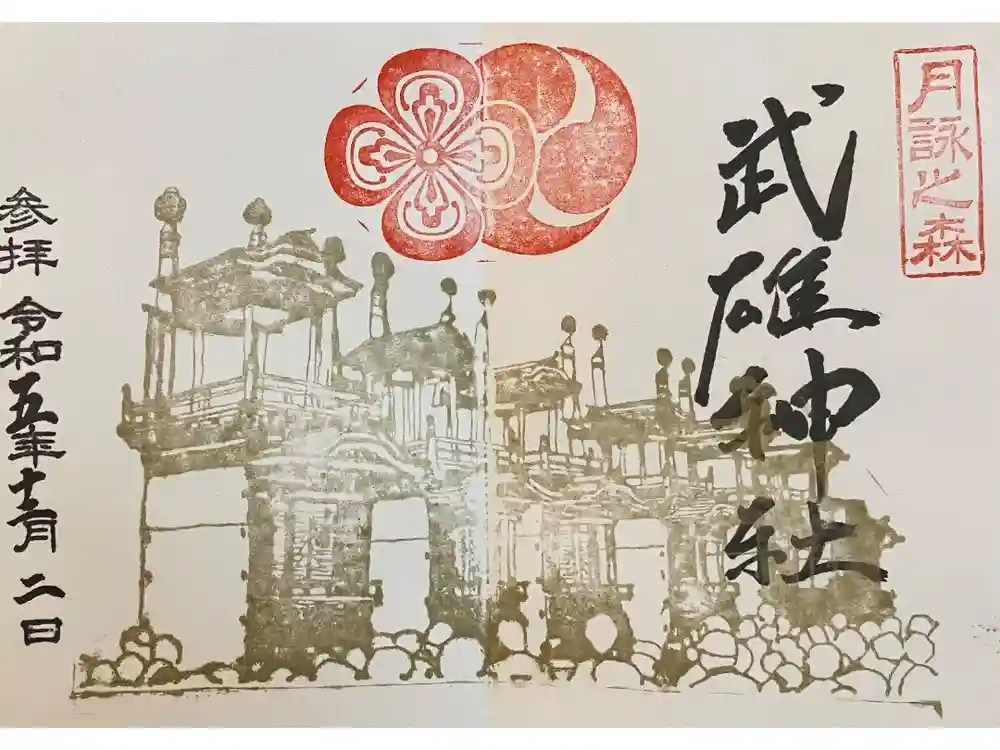 月詠之森
武雄神社
参拝 令和五年十二月二日